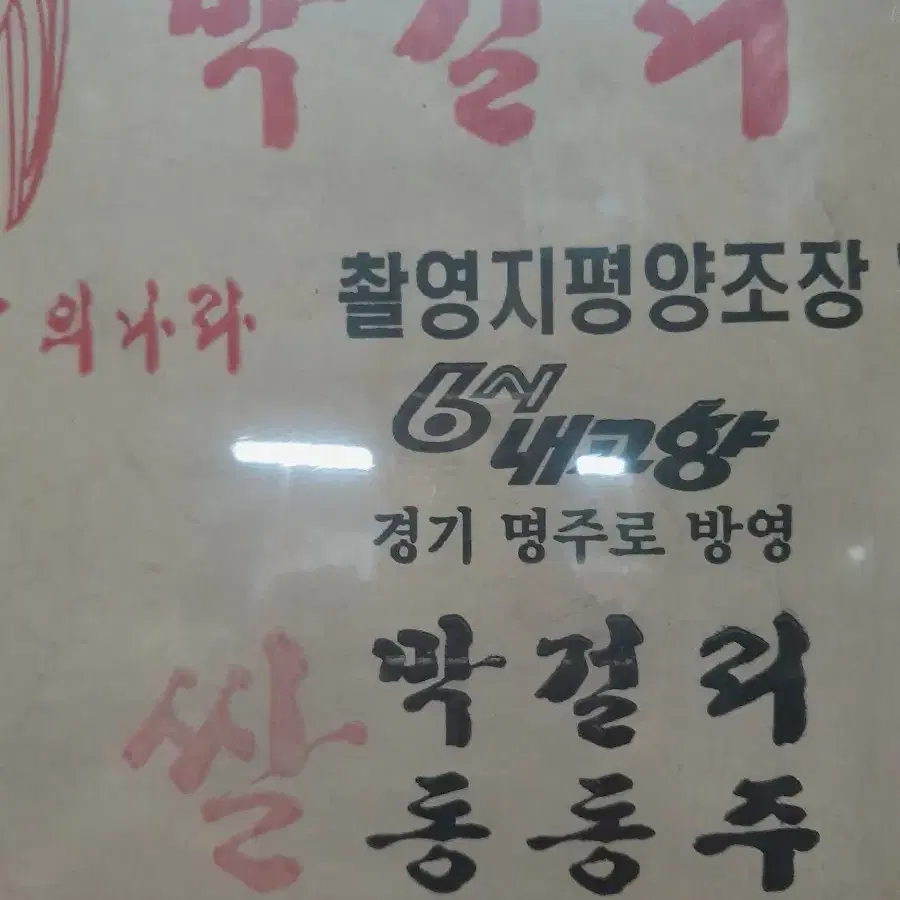 막걸리
의나라
촬영지평양조장
6시
내고향
경기 명주로 방영
쌀
막걸리
동동주